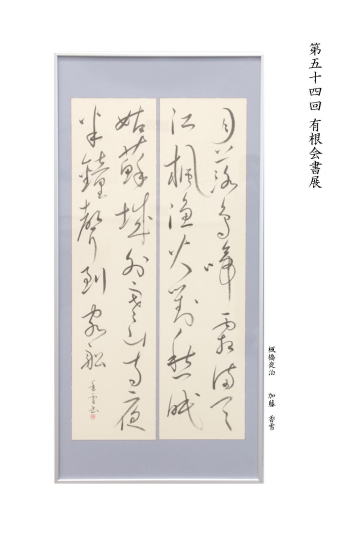 第五十四回 有根会書展
月落烏啼霜満天
江楓漁火對愁眠
姑蘇城外寒山寺夜
半鐘聲到客船
香雪書
楓橋夜泊 加藤 香雪